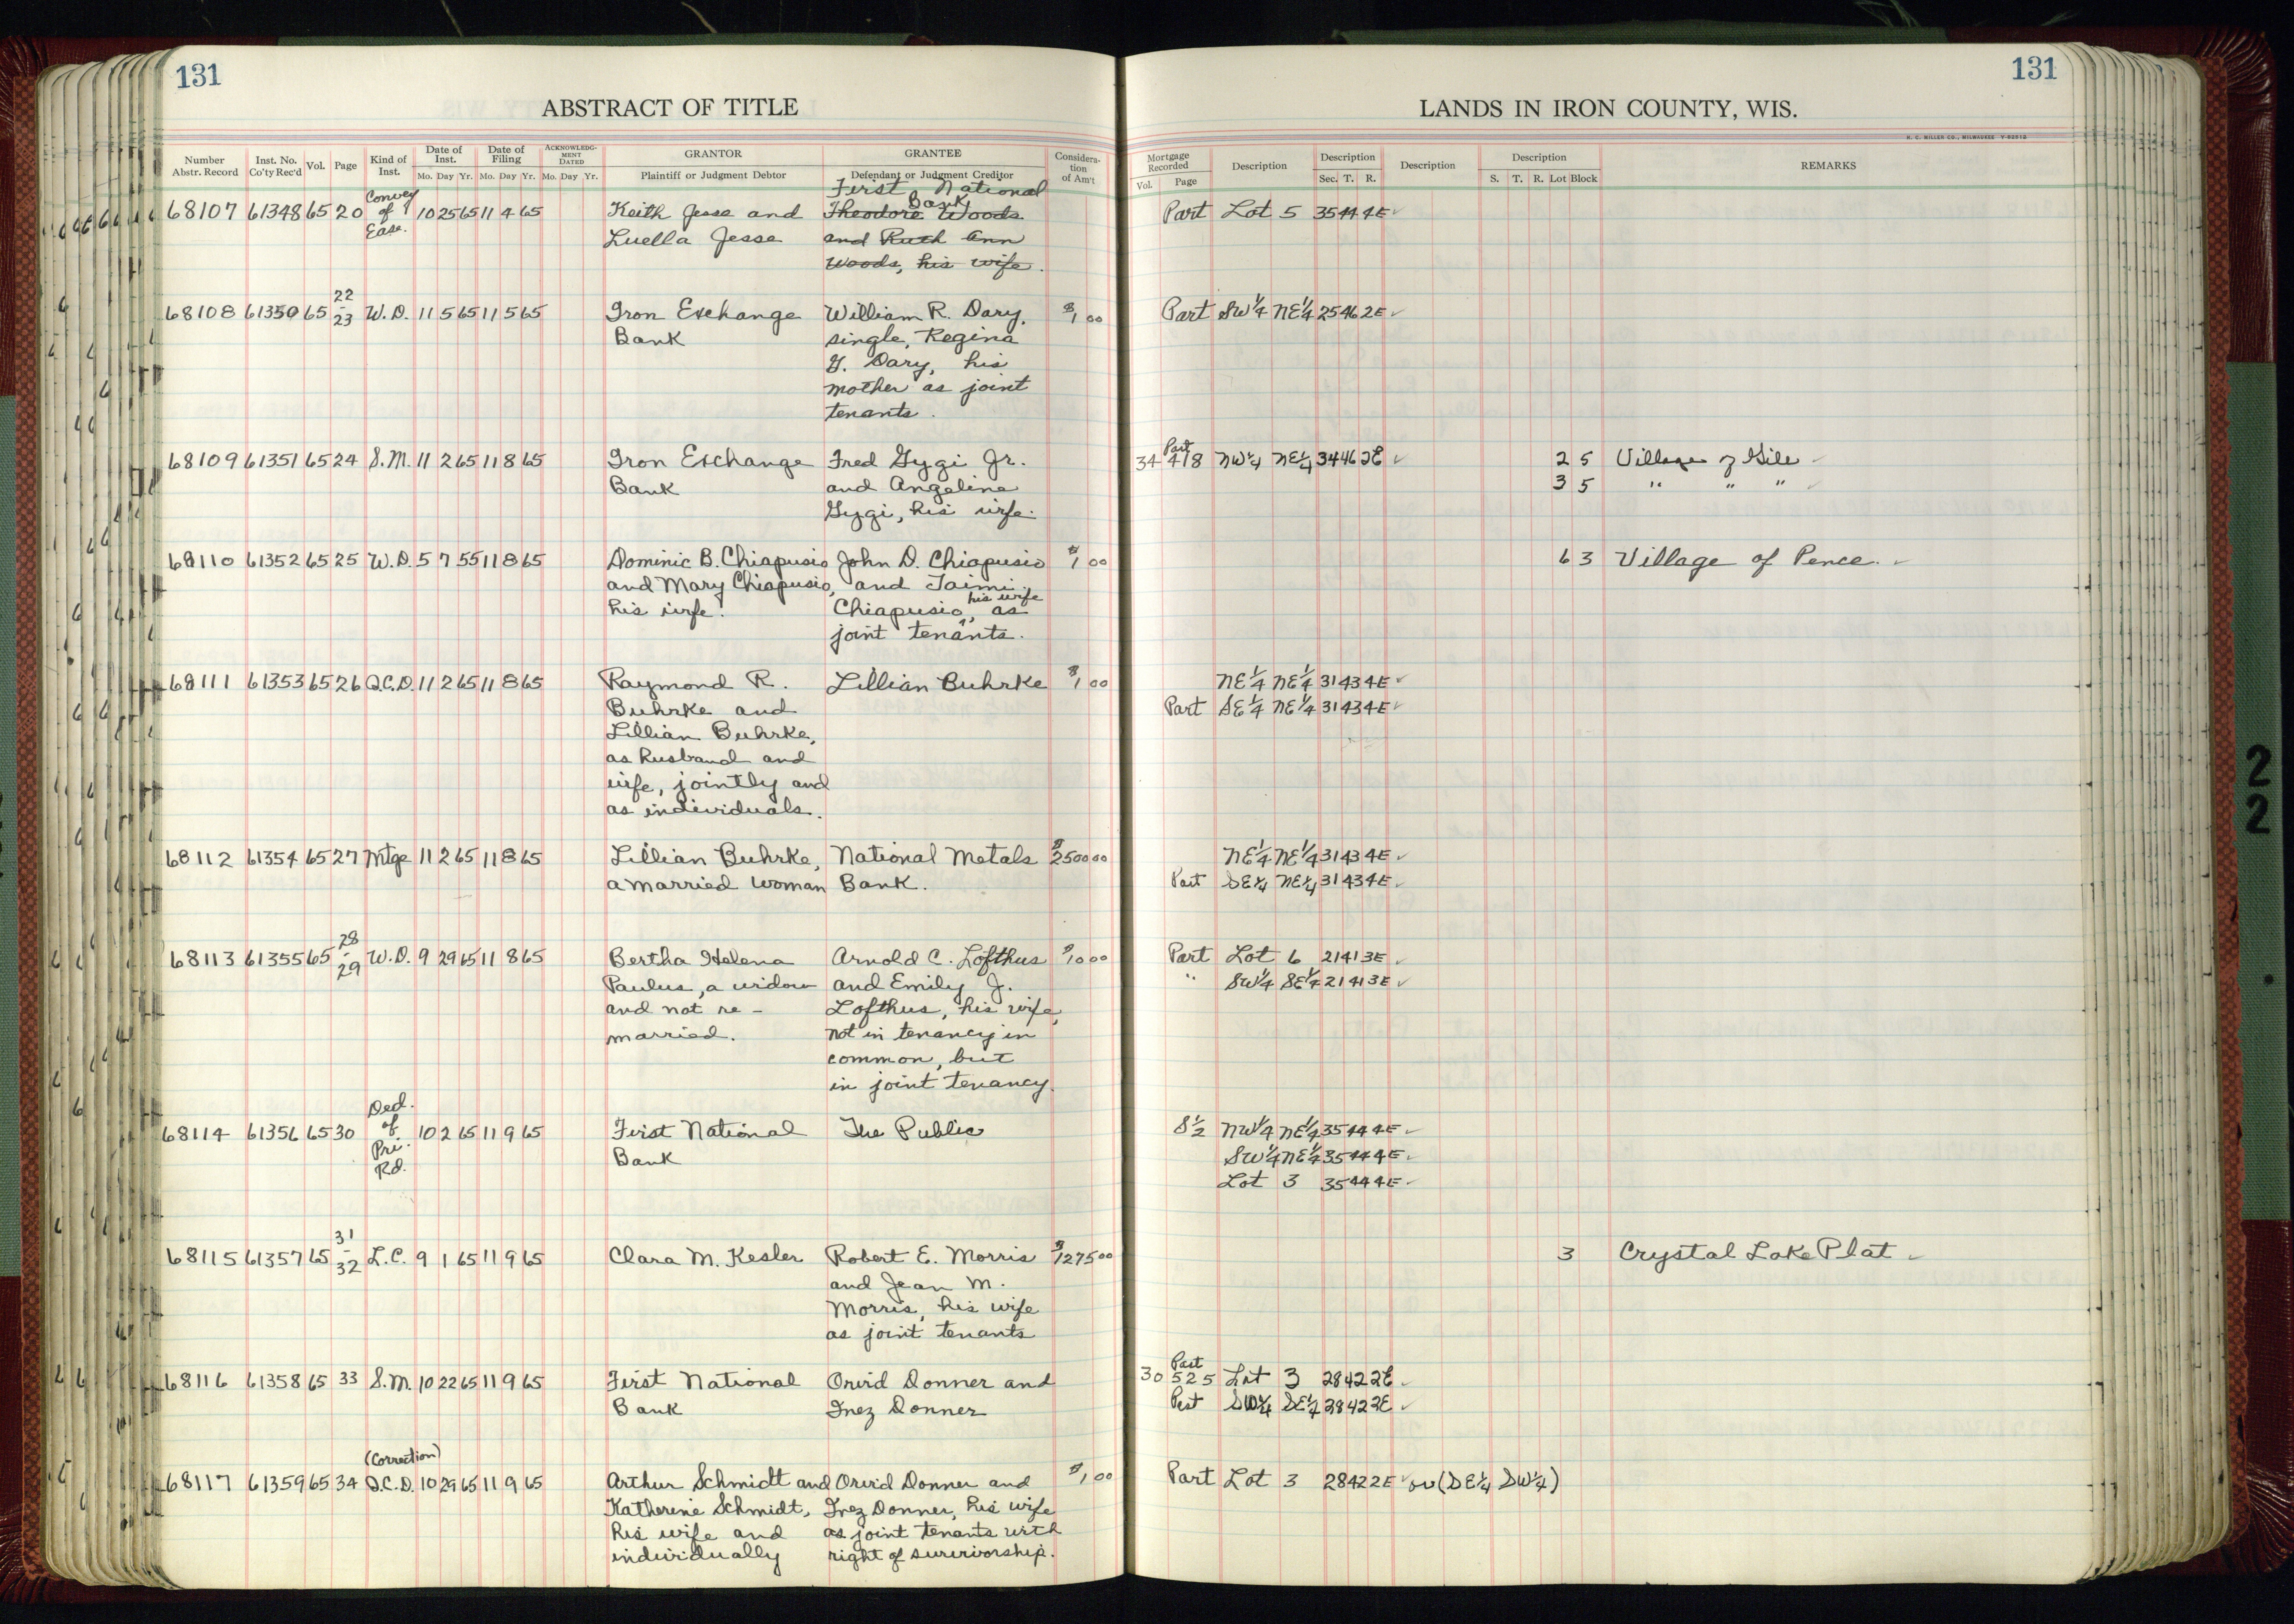 131
131
ABSTRACT OF TITLE
LANDS IN IRON COUNTY, WIS.
H. C. MILLER CO., MILWAUKEE
Number Abstr. Record Inst. No. Co'ty Rec'd Vol. Page Kind of Inst. Date of Inst. Mo. Day Yr. Date of Filing Mo. Day Yr. ACKNOWLEDGMENT DATED Mo. Day Yr. GRANTOR Plaintiff or Judgment Debtor GRANTEE Defendant or Judgment Creditor Consideration of Am't
Mortgage Recorded Vol. Page Description Description Sec. T. R. Description Description S. T. R. Lot Block REMARKS
Convey First National
68107 61348 65 20 of 10 25 65 11 4 65 Keith Jesse and Theodore Woods Bank Part Lot 5 35 44 4E ✓
Ease. Luella Jesse and Ruth Ann
Woods, his wife.
22
68108 61350 65 - 23 W.D. 11 5 65 11 5 65 Iron Exchange William R. Dary, $1 00 Part SW¼ NE¼ 25 46 2E ✓
Bank single, Regina
Y. Dary, his
mother as joint
tenants.
68109 61351 65 24 S.M. 11 2 65 11 8 65 Iron Exchange Fred Gygi Jr. 34 Part 418 NW¼ NE¼ 34 46 2E ✓ 2 5 Village of Gile ✓
Bank and Angeline 3 5 " " " ✓
Gygi, his wife.
68110 61352 65 25 W.D. 5 7 55 11 8 65 Dominic B. Chiapusio John D. Chiapusio $1 00 6 3 Village of Pence. ✓
and Mary Chiapusio, and Taimi
his wife. Chiapusio, his wife as
joint tenants.
68111 61353 65 26 Q.C.D. 11 2 65 11 8 65 Raymond R. Lillian Buhrke $1 00 NE¼ NE¼ 31 43 4E ✓
Buhrke and Part SE¼ NE¼ 31 43 4E ✓
Lillian Buhrke,
as husband and
wife, jointly and
as individuals.
68112 61354 65 27 Mtge 11 2 65 11 8 65 Lillian Buhrke, National Metals $2500 00 NE¼ NE¼ 31 43 4E ✓
a married woman Bank. Part SE¼ NE¼ 31 43 4E ✓
28
68113 61355 65 - 29 W.D. 9 29 65 11 8 65 Bertha Helena Arnold C. Lofthus $10 00 Part Lot 6 21 41 3E ✓
Paulus, a widow and Emily J. " SW¼ SE¼ 21 41 3E ✓
and not re- Lofthus, his wife,
married. not in tenancy in
common, but
in joint tenancy.
Ded.
68114 61356 65 30 of 10 2 65 11 9 65 First National The Public S½ NW¼ NE¼ 35 44 4E ✓
Pri. Bank SW¼ NE¼ 35 44 4E ✓
Rd. Lot 3 35 44 4E ✓
31
68115 61357 65 - 32 L.C. 9 1 65 11 9 65 Clara M. Kesler Robert E. Morris $1275 00 3 Crystal Lake Plat ✓
and Jean M.
Morris, his wife
as joint tenants
68116 61358 65 33 S.M. 10 22 65 11 9 65 First National Orvid Donner and 30 Part 525 Lot 3 28 42 2E ✓
Bank Inez Donner Part SW¼ SE¼ 28 42 2E ✓
(Correction)
68117 61359 65 34 Q.C.D. 10 29 65 11 9 65 Arthur Schmidt and Orvid Donner and $1 00 Part Lot 3 28 42 2E ✓ or (SE¼ SW¼)
Katherine Schmidt, Inez Donner, his wife
his wife and as joint tenants with
individually right of survivorship.
2
2